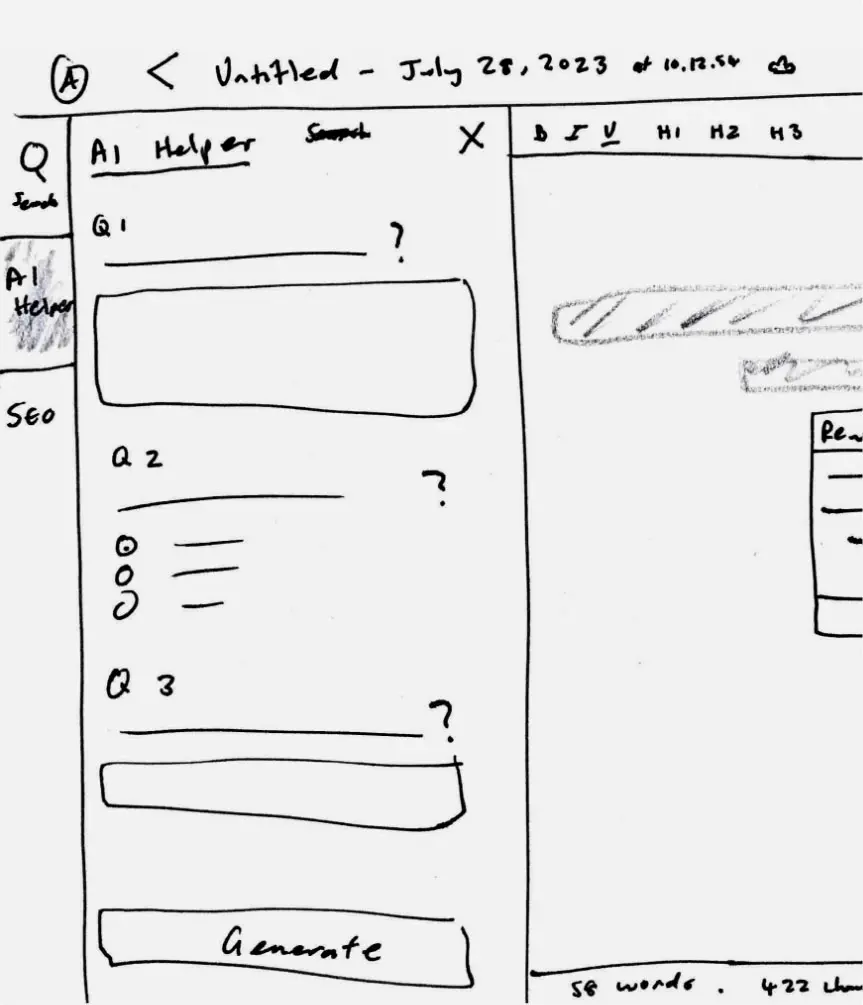 A < Untitled - July 28, 2023 at 10.12.54
Search
AI Helper
SEO
AI Helper X
Q1
?
Q2
?
Q3
?
Generate
B I U H1 H2 H3
58 words . 422